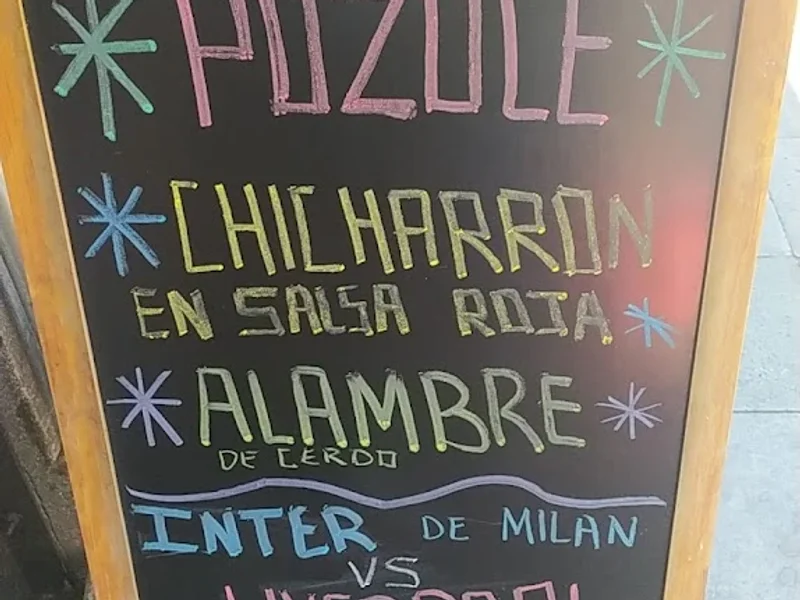 POZOLE
CHICHARRON
EN SALSA ROJA
ALAMBRE
DE CERDO
INTER DE MILAN
VS
LIVERPOOL